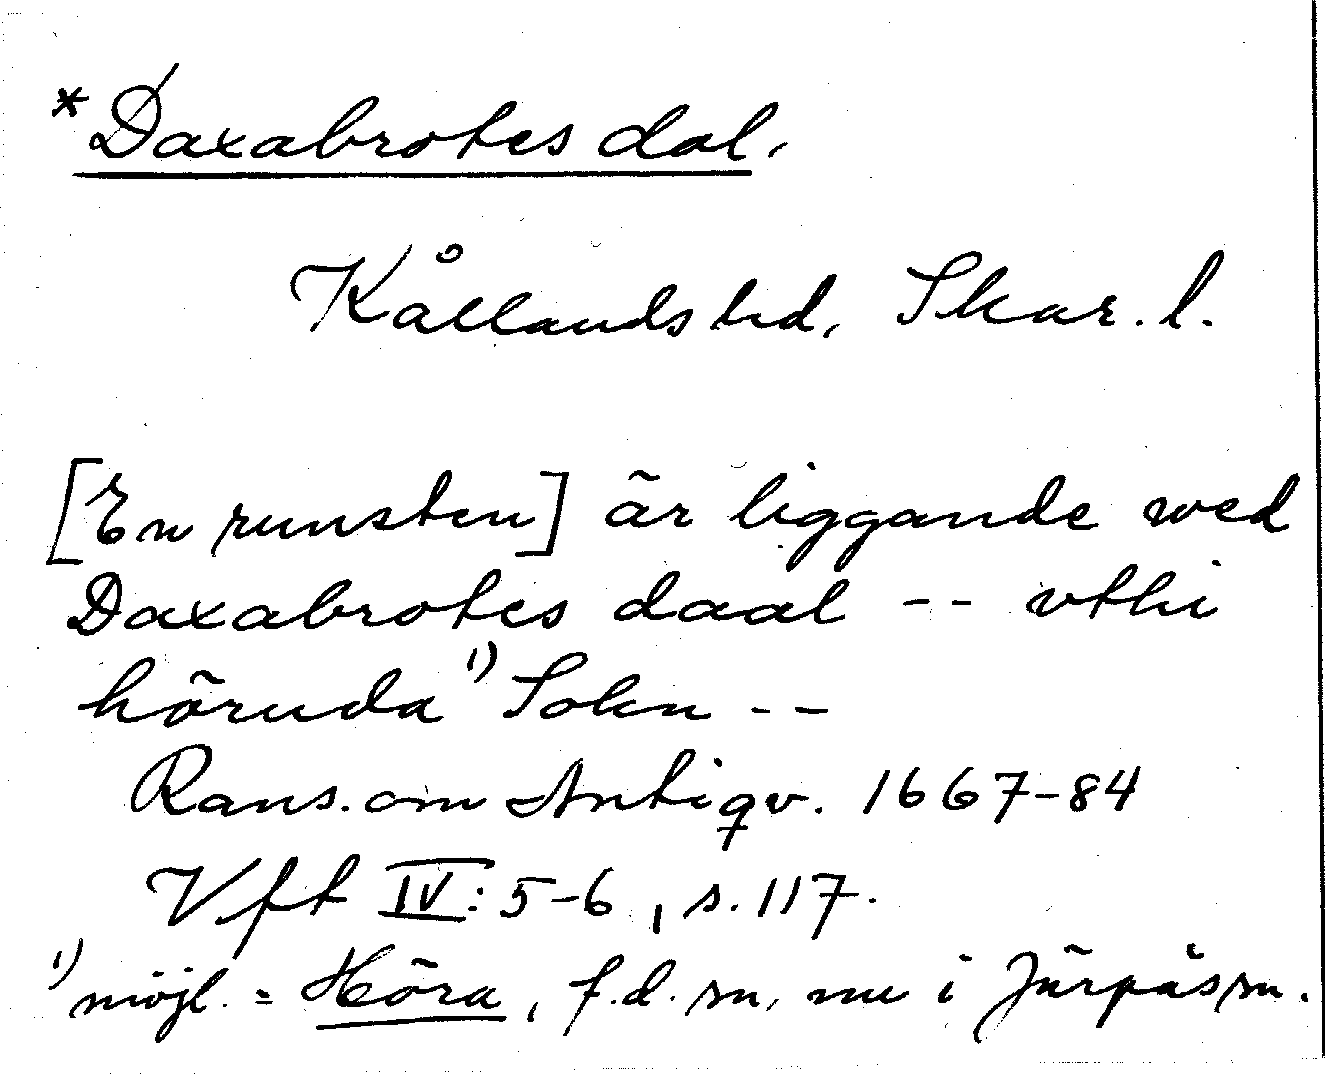 *Daxabrotes dal.
Kållands hd, Skar. l.
[En runsten] är liggande wed
Daxabrotes daal -- vthi
höruda ¹) Sokn --
Rans. om Antiqv. 1667-84
Vft IV: 5-6, s. 117.
¹) möjl. = Höra, f.d. sn, nu i Järpås sn.